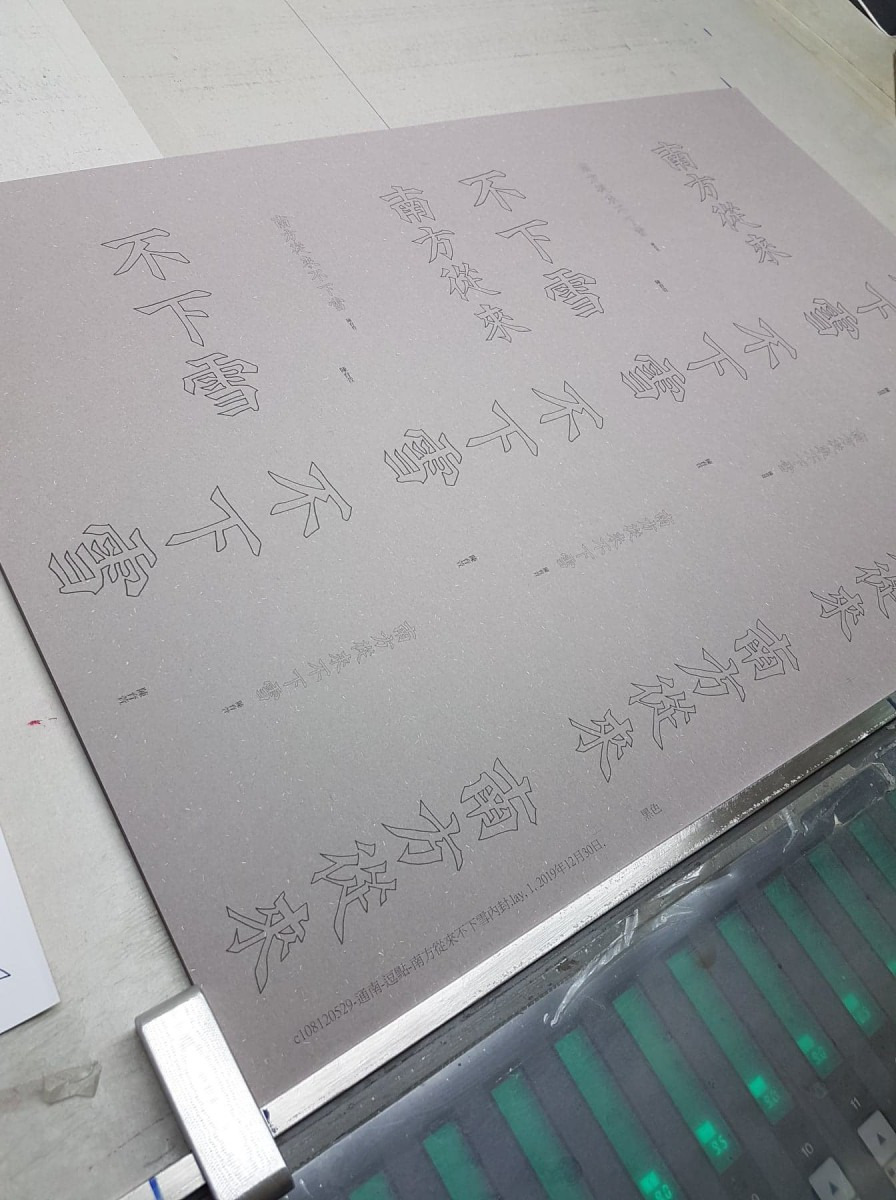 不下雪
南方從來不下雪
南方從來
不下雪
南方從來不下雪
南方從來
不下雪
不下雪
不下雪
南方從來不下雪
南方從來不下雪
南方從來不下雪
南方從來
南方從來
從來
c108120529-通南-逗點-南方從來不下雪內封.lay, 1, 2019年12月30日,
黑色
10
11